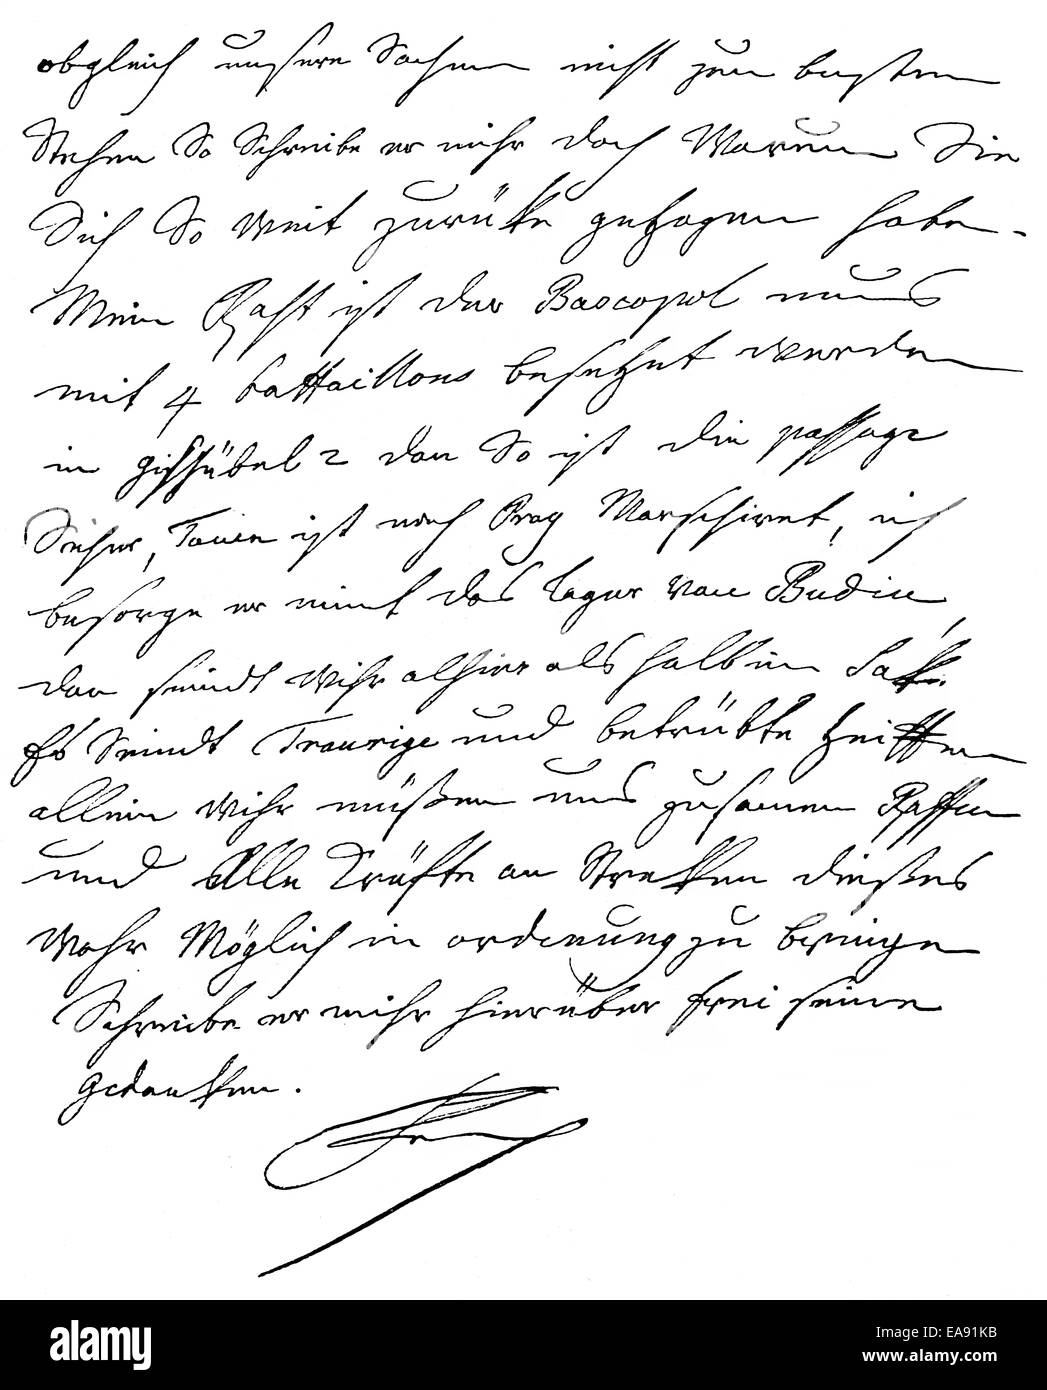 obgleich unsere Sachen nicht zum besten
Stehen So Schreibe er mihr doch Warum Sie
Sich So weit zurüke gezogen haben.
Mein Raht ist der Bascopol mus
mit 4 battaillons besetzet werden
in gishübel 2 dan So ist die passage
Sicher, Tauen ist nach Prag Marschiret, ich
besorge er nimt das lager von Budin,
dan seindt wihr alhier als halb im Sak.
Es Seindt Traurige und betrübte Zeitten
allein wihr müßen uns zusamen Raffen
und Alle Kräfte an Strekken dießes
wohr Möglich in ordenung zu bringen
Schreibe er mihr hierüber frei seine
gedanken.
Fch
alamy
EA91KB
www.alamy.com